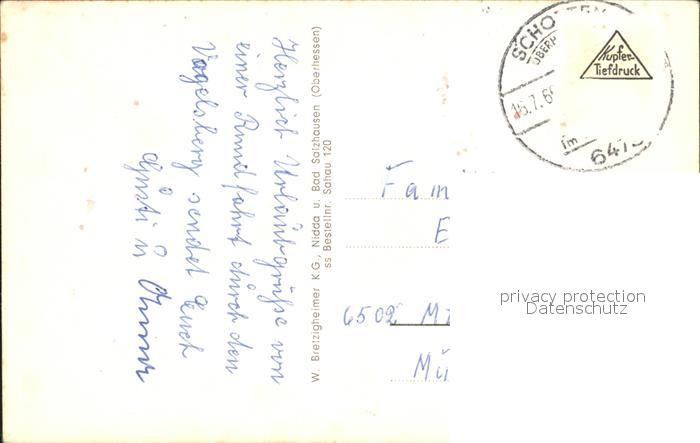 Herzlich Urlaubsgrüße von
einer Rundfahrt durch den
Vogelsberg sendet Euch
W. Bretzigheimer K.G., Nidda u. Bad Salzhausen (Oberhessen)
ss Bestellnr. Sahau 120
SCHOTTEN
OBERH
16.7.6
im
647
Kupfer-
Tiefdruck
Fam
E
6502 M
Mü
privacy protection
Datenschutz